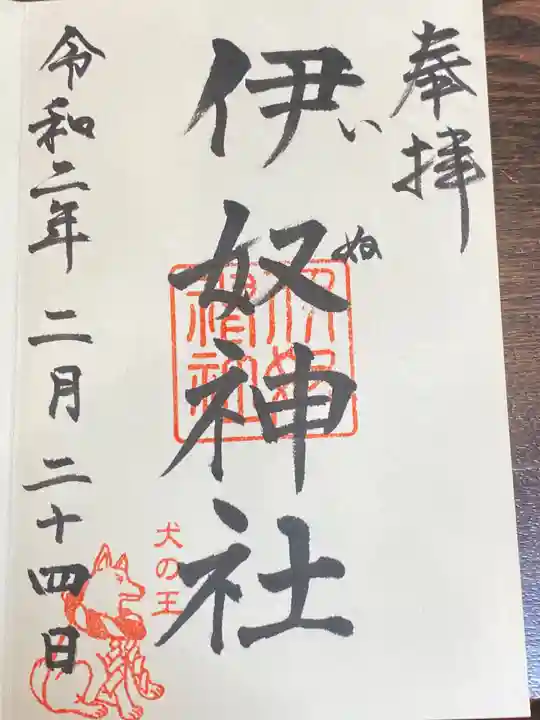 奉拝
伊奴神社
いぬ
伊奴神社
犬の王
令和二年 二月 二十四日